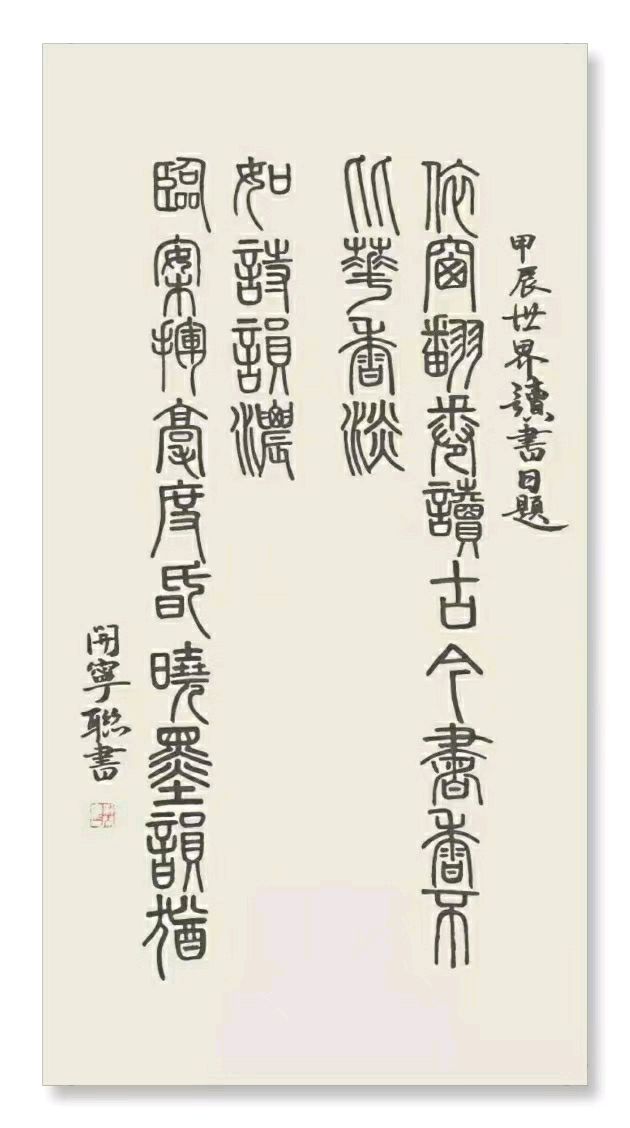 甲辰世界讀書日題
依窗翻卷讀古今書香不
比華香淡
臨案揮毫度昏曉墨韻猶
如詩韻濃
開寧聯書